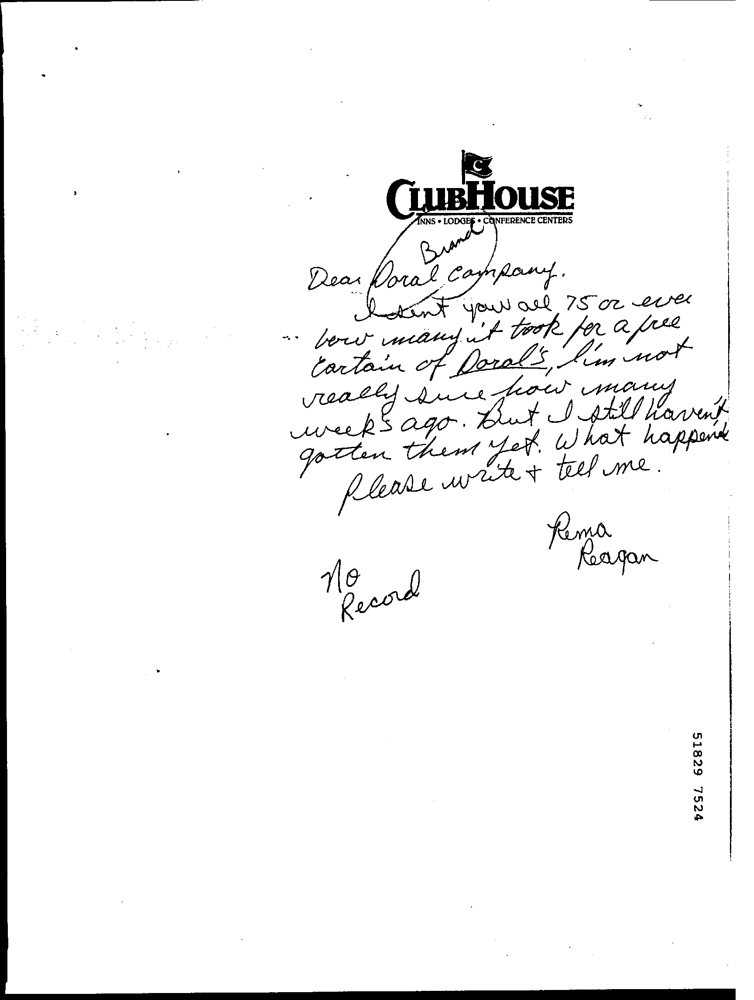 C
CLUBHOUSE
INNS • LODGES • CONFERENCE CENTERS
Brand
Dear Doral Company.
I sent you all 75 or ever
how many it took for a free
Cartain of Doral's, I'm not
really sure how many
week's ago. But I still haven't
gotten them yet. What happend
Please write & tell me.
Rema
Reagan
No
Record
51829 7524